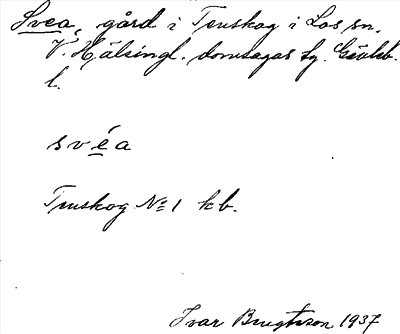 Svea, gård i Tenskog i Los sn.
V. Hälsingl. domsagas tg. Gävleb.
l.
svéa
Tenskog No 1 kb.
Ivar Bengtsson 1937